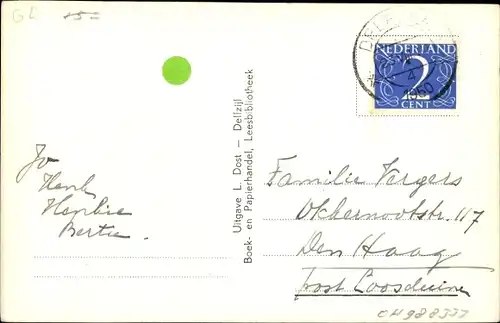 GL 15=
NEDERLAND
2
CENT
4
1950
Uitgave L. Dost — Delfzijl
Boek- en Papierhandel, Leesbibliotheek
Jo
Henk
Bertie
Familie Vergers
Okkernootstr. 117
Den Haag
post Loosduinen
CH988337